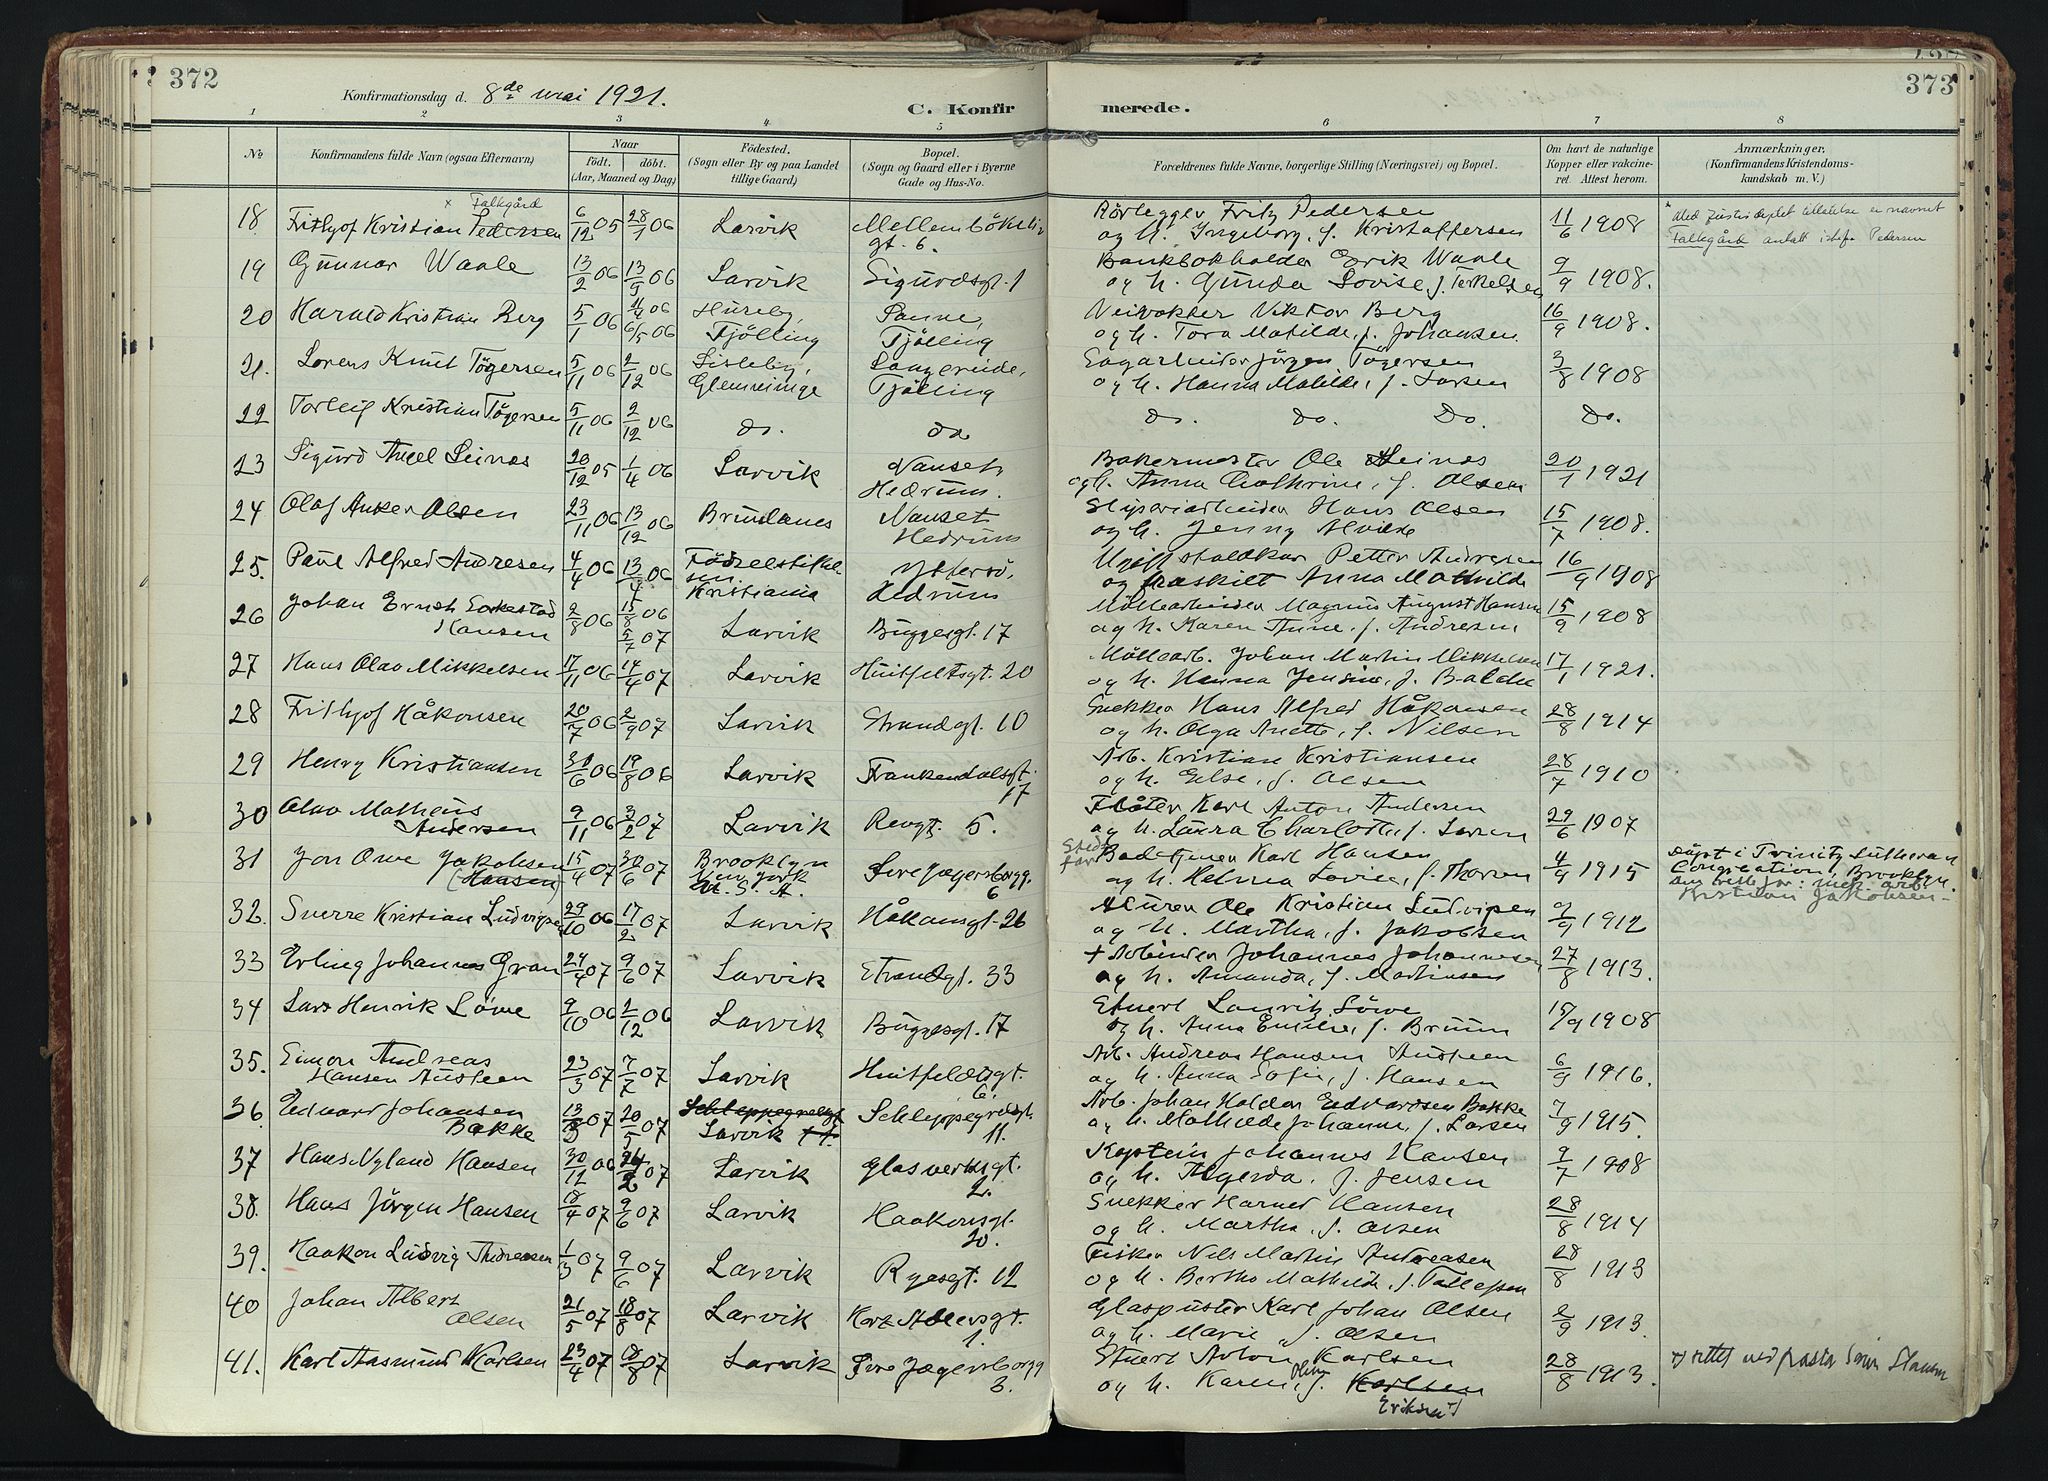 372
Konfirmationsdag d. 8de mai 1921.
C. Konfirmerede.
373
1 2 3 4 5 6 7 8
No
Konfirmandens fulde Navn (ogsaa Efternavn)
Naar
født. døbt.
(Aar, Maaned og Dag)
Fødested.
(Sogn eller By og paa Landet
tillige Gaard)
Bopæl.
(Sogn og Gaard eller i Byerne
Gade og Hus-No.
Forældrenes fulde Navne, borgerlige Stilling (Næringsvei) og Bopæl.
Om havt de naturlige
Kopper eller vakcine-
ret Attest herom.
Anmærkninger.
(Konfirmandens Kristendoms-
kundskab m. V.)
x Falkgård
18. Frithjof Kristian Pedersen 6/12 05 28/1 06 Larvik gt. 6. Rörlegger Fritz Pedersen og h. Ingeborg, f. Kristoffersen 11/6 1908
Falkgård antatt Pedersen
19 Gunnar Waale 13/2 06 13/5 06 Larvik Sigurdsgt. 1 Bankbokholder Erik Waale og h. Gunda Lovise, f. Terkelsen 9/9 1908.
20 Harald Kristian Berg 5/1 06 4/4 06 6/5 06 Huseby, Tjölling Tjölling Veivokter Viktor Berg og h. Tora Matilde, f. Johansen. 16/9 1908.
21. Lorens Knut Tögersen 5/11 06 2/12 06 Lisleby, Glemminge Tjölling Sagarbeider Jörgen Tögersen og h. Hanna Matilde, f. Larsen 3/8 1908
22 Torleif Kristian Tögersen 5/11 06 2/12 06 do. do Do. Do. Do. Do.
23 Sigurd Leinæs 20/12 05 1/4 06 Larvik Nanset, Hedrum. Bakermester Ole Leinæs og h. Anna Cathrine, f. Olsen 20/1 1921
24 Olaf Anker Olsen 23/11 06 13/12 06 Brunlanes Nanset Hedrum Sliperiarbeider Hans Olsen og h. Jenny Alvilde 15/7 1908.
25. Paul Alfred Andresen 4/4 06 13/4 06 Födselsstiftelsen Kristiania Yttersö, Hedrum Petter Andresen og fraskilt Anna Mathilde 16/9 1908
26 Johan Ernst Hansen 2/8 06 15/8 06 5/7 07 Larvik Buggesgt. 17 Möllearbeider Magnus August Hansen og h. Karen Anne, f. Andresen 15/9 1908
27 Hans Olav Mikkelsen 17/11 06 14/4 07 Larvik Huitfeltsgt. 20 Möllearb. Johan Martin Mikkelsen og h. Hanna Jensine, f. 17/1 1921.
28 Frithjof Håkonsen 20/7 06 2/9 07 Larvik Strandgt. 10 Snekker Hans Alfred Håkonsen og h. Olga Anette, f. Nilsen 28/8 1914
29 Henry Kristiansen 30/6 06 19/8 06 Larvik Frankendalsgt. 17 Arb. Kristian Kristiansen og h. Else, f. Olsen 28/7 1910
30 Olav Matheus Andersen 9/11 06 3/2 07 Larvik Revgt. 5. Flöter Karl Anton Andersen og h. Laura Charlotte, f. Larsen 29/6 1907
31 Jon Owe Jakobsen (Hansen) 15/4 07 30/6 07 Brooklyn New York U. S. A. Fire Jægersborgg. 6 Stedfar Badetjener Karl Hansen og h. Helma Lovise, f. Thoresen 4/9 1915 Döpt i Trinity Lutheran Congreation, Brooklyn.
Kristian Jakobsen
32. Sverre Kristian Ludvigsen 29/10 06 17/2 07 Larvik Håkonsgt. 26 Murer Ole Kristian Ludvigsen og h. Martha, f. Jakobsen 9/9 1912
33 Erling Johannes Gran 24/4 07 9/6 07 Larvik Strandgt. 33 + Arbeider Johannes Johannesen og h. Amanda, f. Martinsen 27/8 1913.
34 Lars Henrik Löwe 9/10 06 2/12 06 Larvik Buggesgt. 17 Stuert Lauritz Löwe og h. Anna Emilie, f. Bruun 15/9 1908
35. Simon Andreas Hansen Austeen 23/3 07 7/7 07 Larvik Huitfeldtsgt. 6. Arb. Andreas Hansen Austeen og h. Anna Sofie, f. Hansen 6/9 1916.
36. Edvard Johansen Bakke 13/3 07 20/5 07 Schleppegrellsgt Larvik 11. Schleppegrellsgt. 11. Arb. Johan Halden Edvardsen Bakke og h. Mathilde Johanne, f. Larsen 7/9 1915.
37 Hans Nyland Hansen 30/12 06 24/2 07 Larvik Glasverksgt. 2. Kaptein Johannes Hansen og h. Algerda, f. Jensen 9/7 1908
38. Hans Jörgen Hansen 18/4 07 9/6 07 Larvik Haakonsgt. 20. Snekker Hansen og h. Martha, f. Olsen 28/8 1914
39. Haakon Ludvig Andreasen 1/3 07 9/6 07 Larvik Ryesgt. 12 Fisker Nils Martin Andreasen og h. Bertha Mathilde, f. Tollefsen 28/8 1913
40 Johan Albert Olsen 21/5 07 18/8 07 Larvik 1. Glaspuster Karl Johan Olsen og h. Marie, f. Olsen 2/9 1913.
41. Karl Aasmund Karlsen 23/4 07 18/8 07 Larvik Fire Jægersborgg 3. Stuert Anton Karlsen og h. Karen, f. Karlsen 28/8 1913.
Eriksen
rettet ved